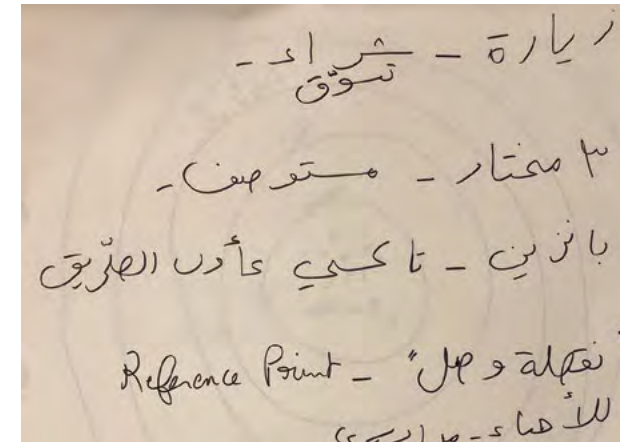 زيارة - شراء -
تسوّق
٣ مختار - مستوصف -
بانزين - تاكسي عأول الطّريق
"نقطة وصل" - Reference Point
للأحياء -